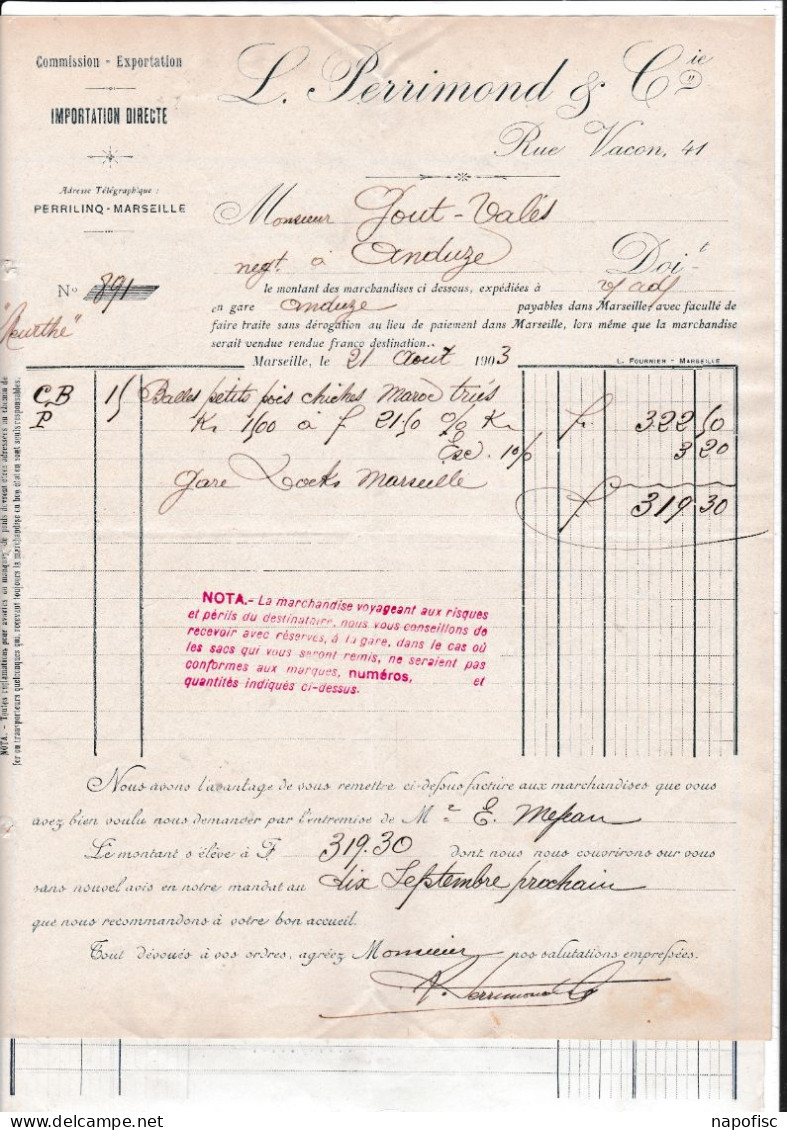 Commission - Exportation
IMPORTATION DIRECTE
Adresse Télégraphique :
PERRILINQ-MARSEILLE
L. Perrimond & Cie
Rue Vacon, 41
Monsieur Gout-Valès
negt. à Anduze
Doit
N° 891
le montant des marchandises ci dessous, expédiées à
en gare Anduze payables dans Marseille, avec faculté de
faire traite sans dérogation au lieu de paiement dans Marseille, lors même que la marchandise
serait vendue rendue franco destination.
"Meurthe"
Marseille, le 21 Août 1903
L. FOURNIER - MARSEILLE
CB 15 Balles petits pois chiches Maroc triés
P Kr 1500 à f 21.50 % Kr fr. 322 50
Esc. 1 0/0 3 20
Gare Docks Marseille
f 319.30
NOTA.- La marchandise voyageant aux risques
et périls du destinataire, nous vous conseillons de
recevoir avec réserves, à la gare, dans le cas où
les sacs qui vous seront remis, ne seraient pas
conformes aux marques, numéros, et
quantités indiqués ci-dessus.
NOTA. - Toutes réclamations pour avaries ou manque de poids doivent êtres adressées au chemin de
fer ou transporteurs quelconques qui, recevant toujours la marchandise en bon état en sont seuls responsables.
Nous avons l'avantage de vous remettre ci-dessus facture aux marchandises que vous
avez bien voulu nous demander par l'entremise de Mr E.
Le montant s'élève à F 319.30 dont nous nous couvrirons sur vous
sans nouvel avis en notre mandat au dix Septembre prochain
que nous recommandons à votre bon accueil.
Tout dévoués à vos ordres, agréez Monsieur nos salutations empressées.
L. Perrimond & Cie
napofisc